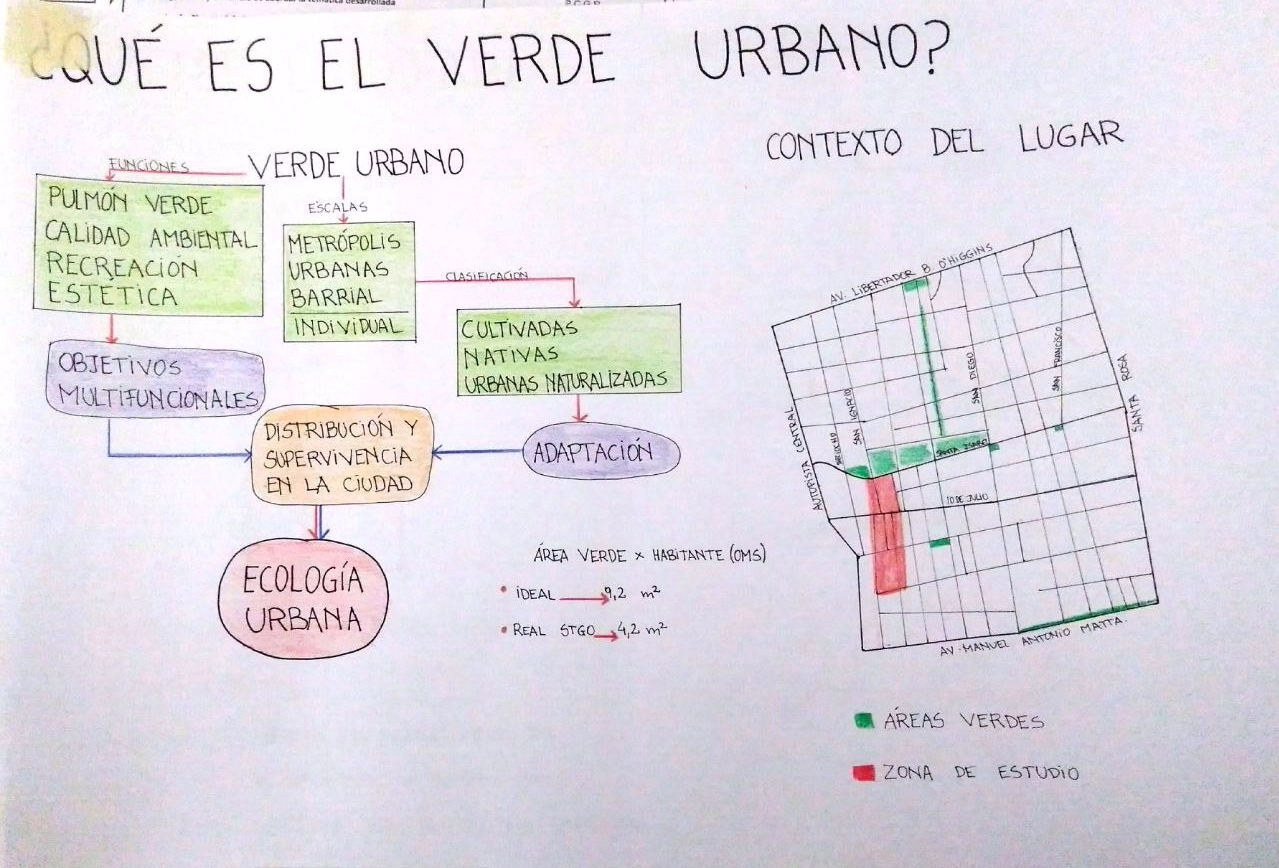 temática desarrollada
¿QUÉ ES EL VERDE URBANO?
CONTEXTO DEL LUGAR
VERDE URBANO
FUNCIONES
PULMÓN VERDE
CALIDAD AMBIENTAL
RECREACIÓN
ESTÉTICA
ESCALAS
METRÓPOLIS
URBANAS
BARRIAL
INDIVIDUAL
CLASIFICACIÓN
CULTIVADAS
NATIVAS
URBANAS NATURALIZADAS
OBJETIVOS
MULTIFUNCIONALES
DISTRIBUCIÓN Y
SUPERVIVENCIA
EN LA CIUDAD
ADAPTACIÓN
ECOLOGÍA
URBANA
ÁREA VERDE x HABITANTE (OMS)
• IDEAL → 9,2 m²
• REAL STGO → 4,2 m²
AV. LIBERTADOR B O'HIGGINS
AUTOPISTA CENTRAL
SAN IGNACIO
SAN DIEGO
SAN FRANCISCO
SANTA ROSA
SANTA ISABEL
10 DE JULIO
AV. MANUEL ANTONIO MATTA.
ÁREAS VERDES
ZONA DE ESTUDIO